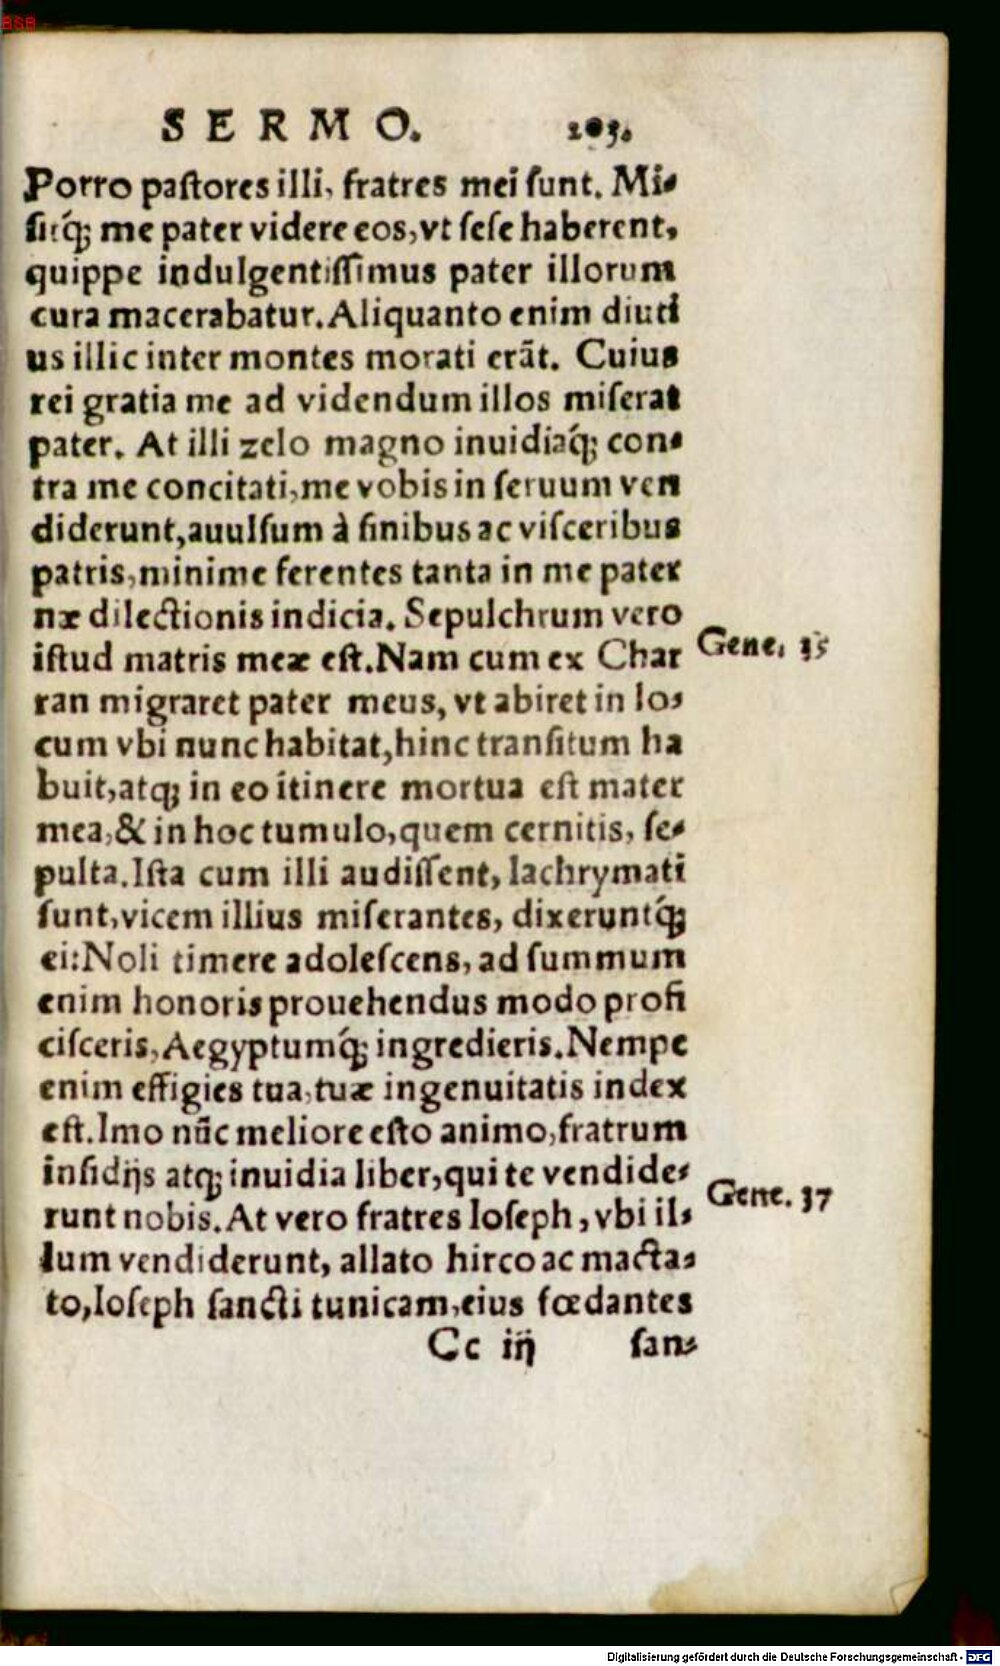 BSB
SERMO. 203.
Porro paſtores illi, fratres mei ſunt. Mi-
ſitq́; me pater videre eos, vt ſeſe haberent,
quippe indulgentiſſimus pater illorum
cura macerabatur. Aliquanto enim diuti
us illic inter montes morati erãt. Cuius
rei gratia me ad videndum illos miſerat
pater. At illi zelo magno inuidiaq́; con-
tra me concitati, me vobis in ſeruum ven
diderunt, auulſum à ſinibus ac viſceribus
patris, minime ferentes tanta in me pater
næ dilectionis indicia. Sepulchrum vero
iſtud matris meæ eſt. Nam cum ex Char
Gene. 35
ran migraret pater meus, vt abiret in lo-
cum vbi nunc habitat, hinc tranſitum ha
buit, atq; in eo itinere mortua eſt mater
mea, & in hoc tumulo, quem cernitis, ſe-
pulta. Iſta cum illi audiſſent, lachrymati
ſunt, vicem illius miſerantes, dixeruntq́;
ei: Noli timere adoleſcens, ad ſummum
enim honoris prouehendus modo profi
ciſceris, Aegyptumq́; ingredieris. Nempe
enim effigies tua, tuæ ingenuitatis index
eſt. Imo nũc meliore eſto animo, fratrum
inſidijs atq; inuidia liber, qui te vendide-
runt nobis. At vero fratres Ioſeph, vbi il-
Gene. 37
lum vendiderunt, allato hirco ac macta-
to, Ioſeph ſancti tunicam, eius fœdantes
Cc iij ſan-
Digitalisierung gefördert durch die Deutsche Forschungsgemeinschaft - DFG